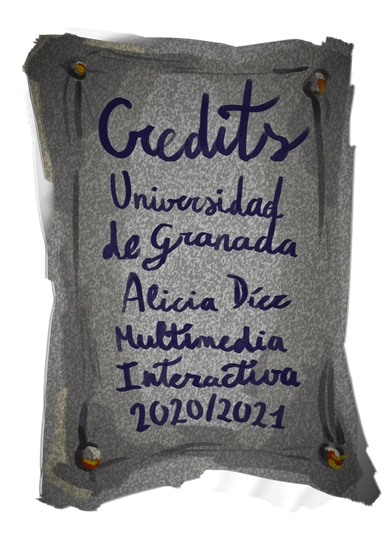 Credits
Universidad
de Granada
Alicia Díez
Multimedia
Interactiva
2020/2021